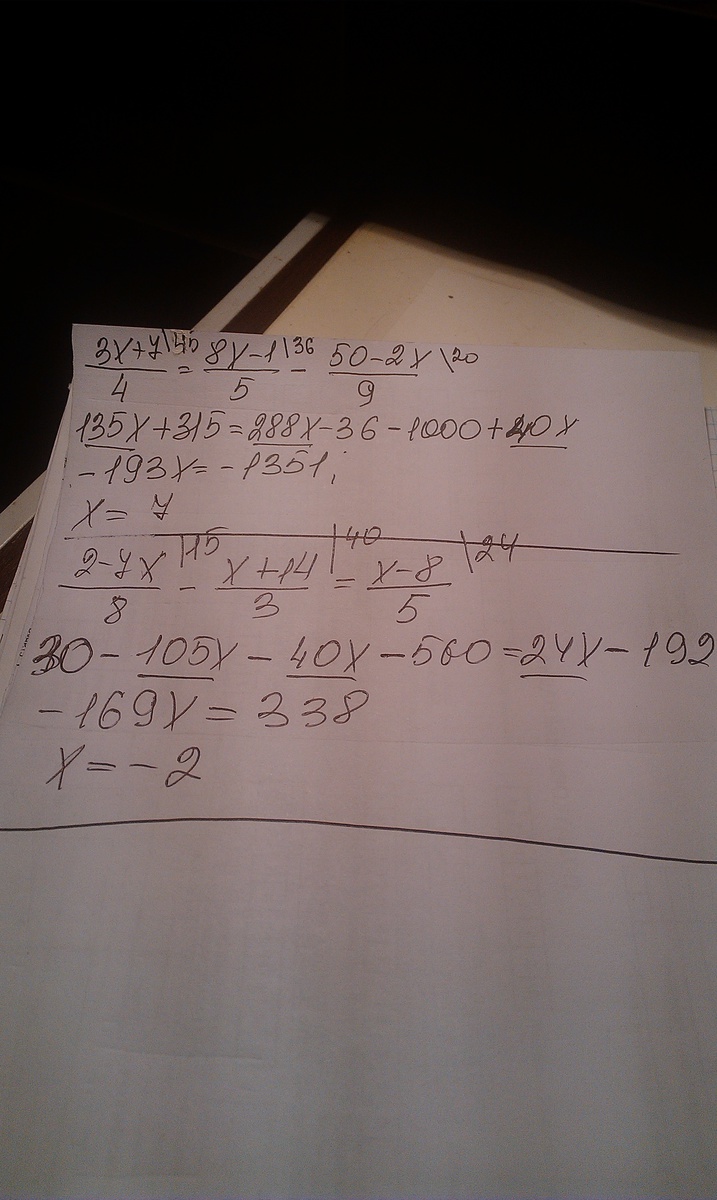 3x+7\45 = 8x-1\36 - 50-2x\20
4 5 9
135x+315=288x-36-1000+40x
-193x=-1351;
x= 7
2-7x |15 - x+14 |40 = x-8 \24
8 3 5
30-105x-40x-560=24x-192
-169x=338
x=-2